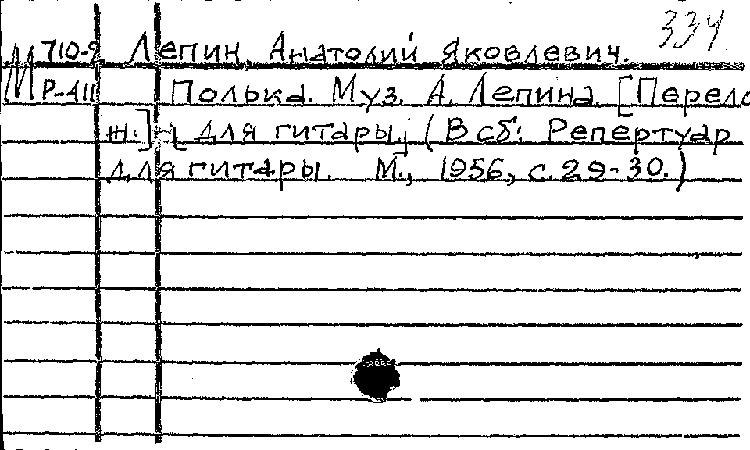 334
М 710-9 Лепин, Анатолий Яковлевич.
Р-411 Полька. Муз. А. Лепина. [Перело
ж.] [для гитары] (В сб: Репертуар
для гитары. М., 1956, с. 29-30.)